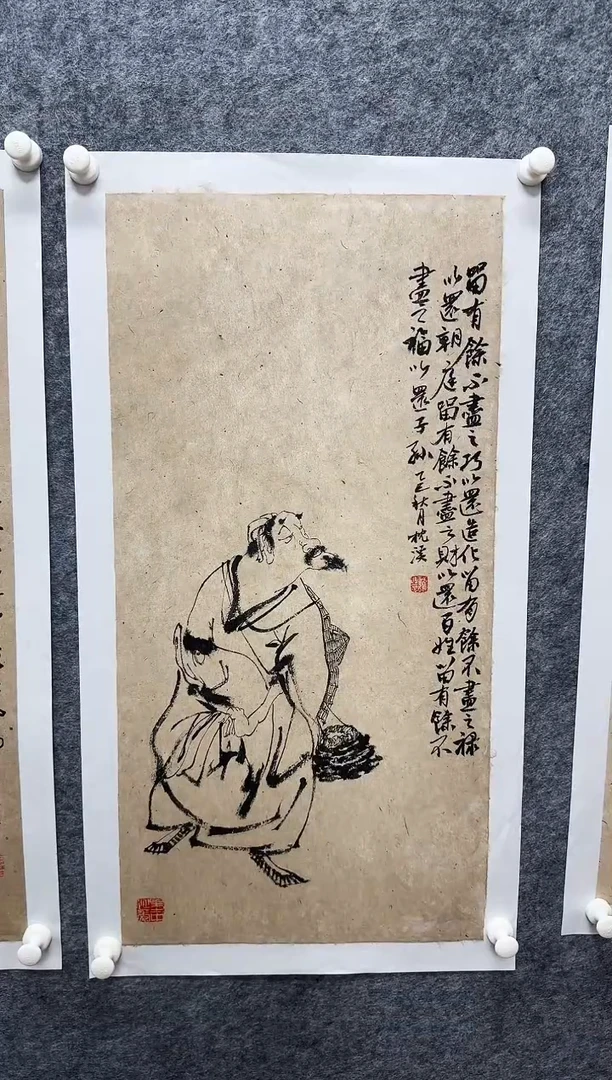 留有餘不盡之巧以還造化留有餘不盡之禄
以還朝庭留有餘不盡之財以還百姓留有餘不
盡之福以還子孫 乙巳秋月枕溪